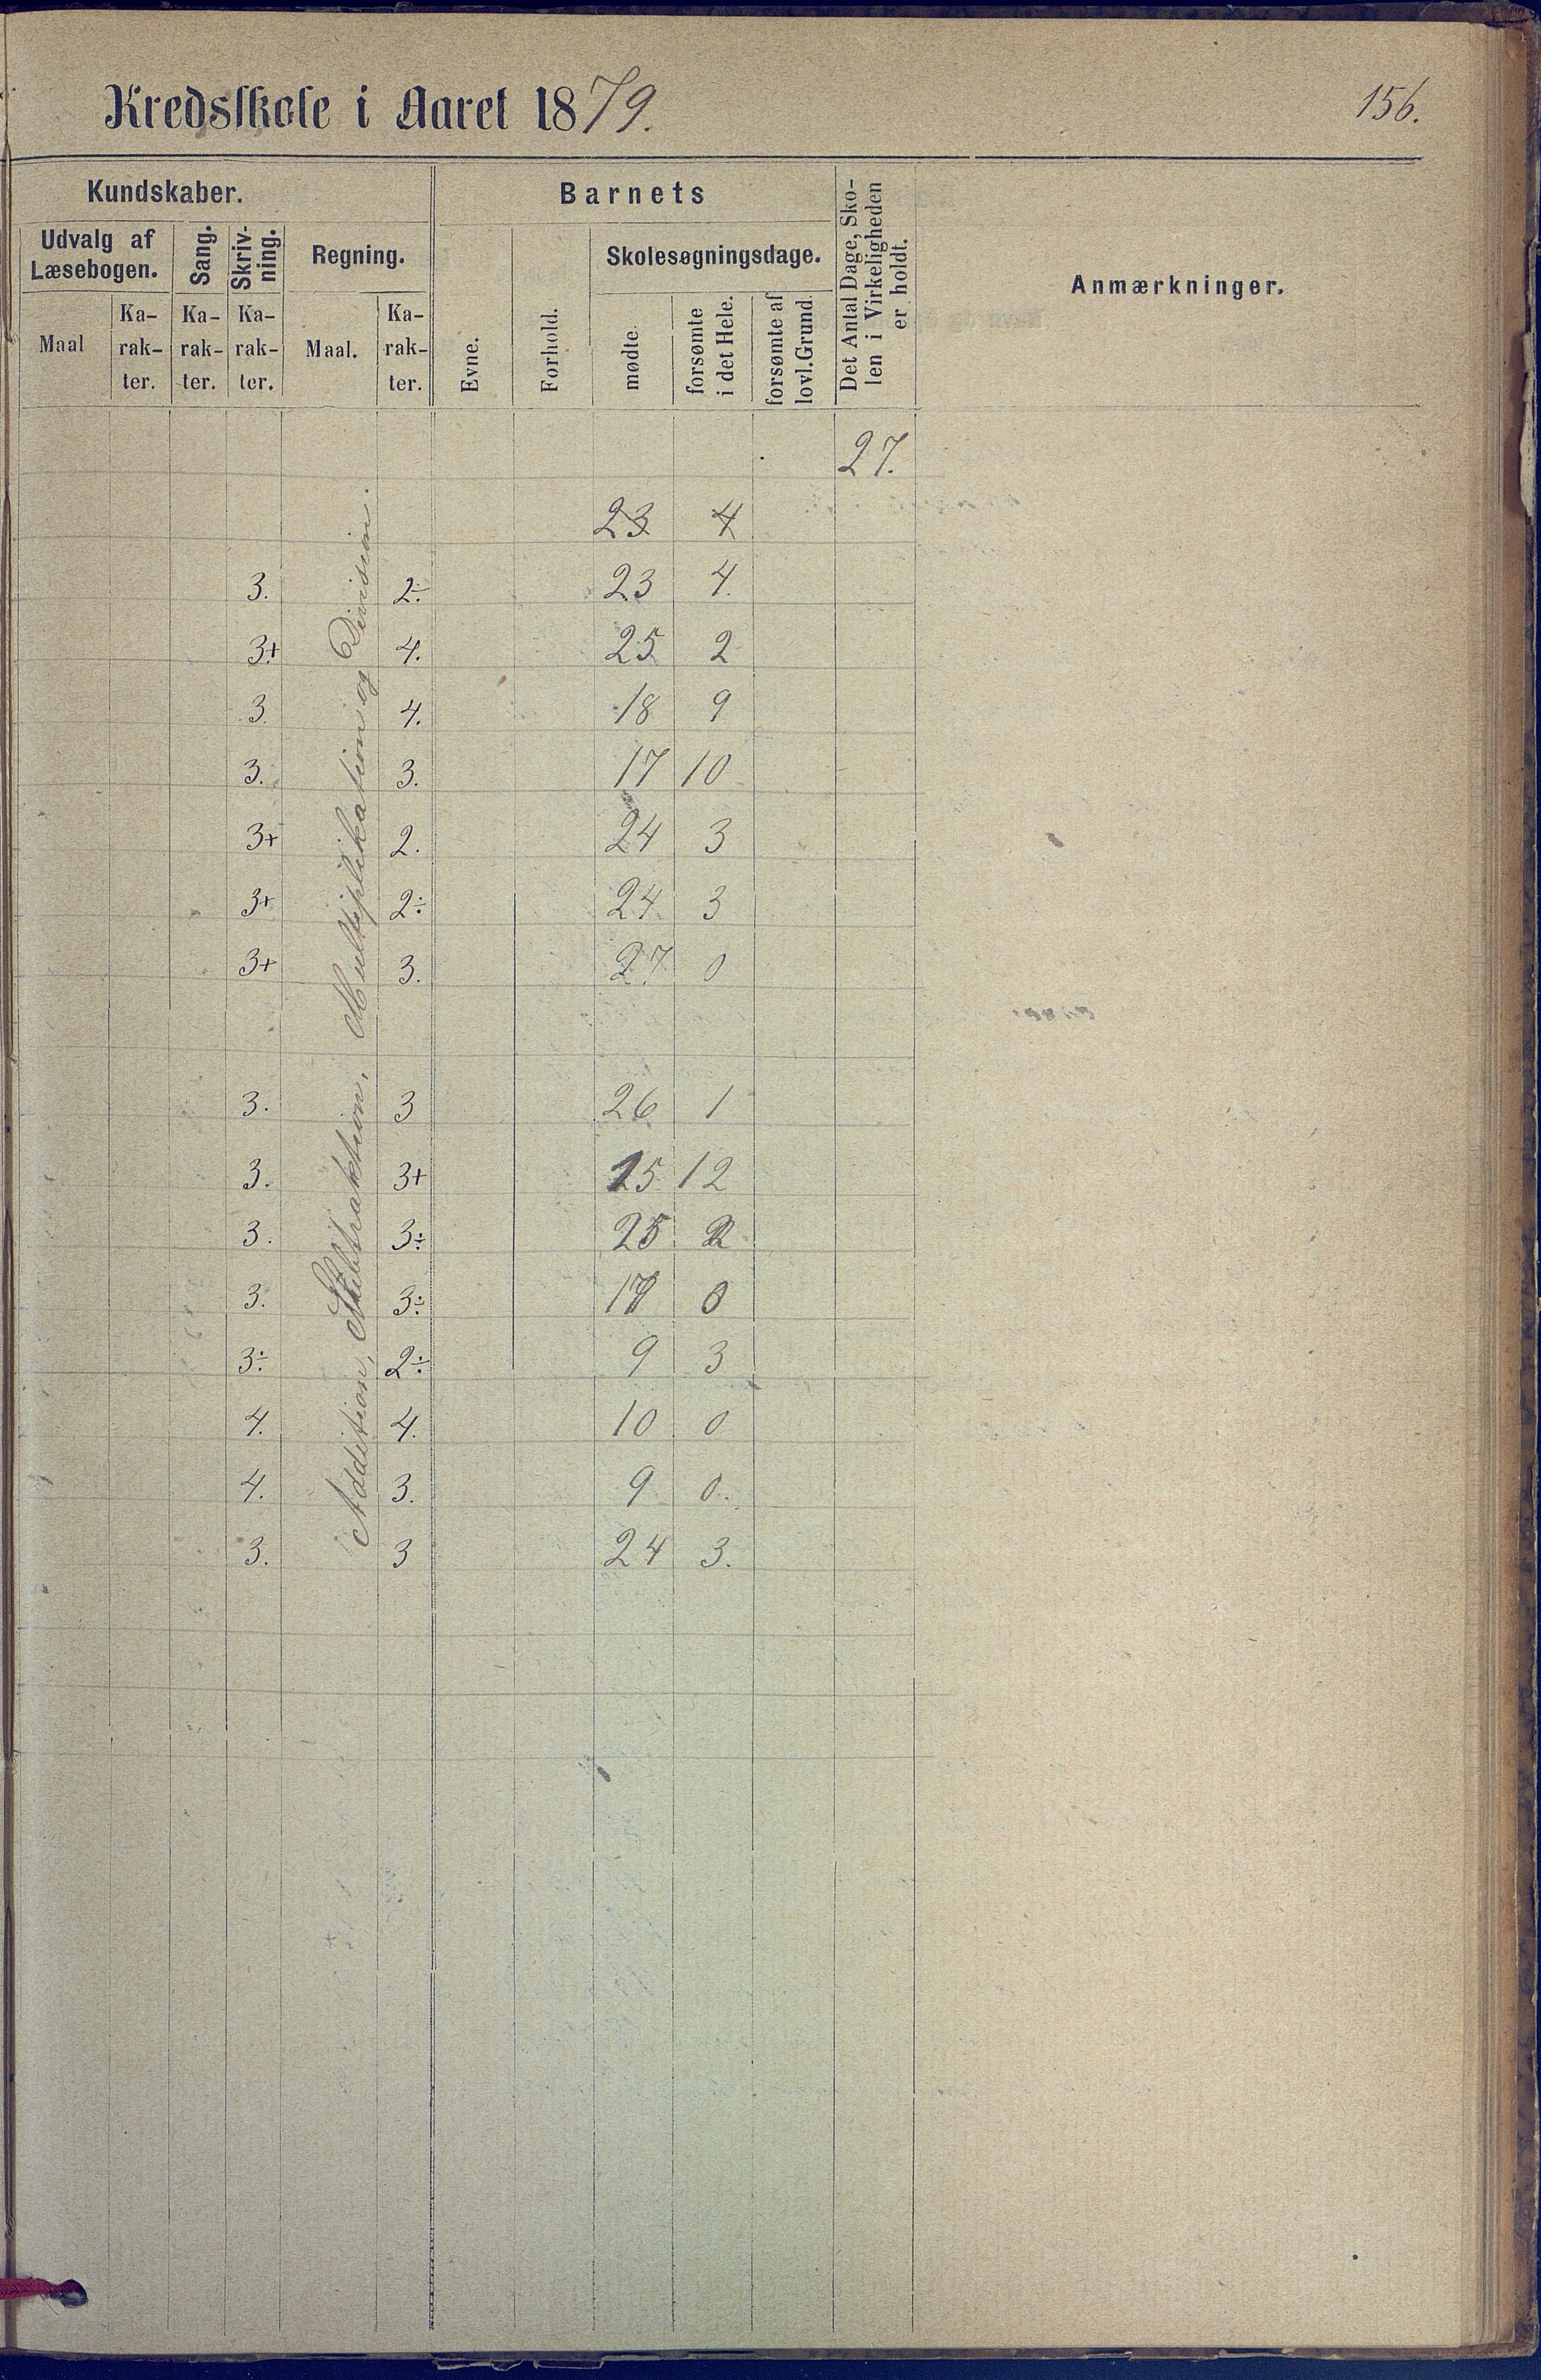 Kredsskole i Aaret 1879.
156.
Kundskaber.
Barnets
Det Antal Dage, Sko-
len i Virkeligheden
er holdt.
Anmærkninger.
Udvalg af
Læsebogen.
Sang.
Skriv-
ning.
Regning.
Evne.
Forhold.
Skolesøgningsdage.
Maal
Ka-
rak-
ter.
Ka-
rak-
ter.
Ka-
rak-
ter.
Maal.
Ka-
rak-
ter.
mødte.
forsømte
i det Hele.
forsømte af
lovl. Grund.
27.
Addition, Subtraktion, Multiplikation og Division.
23 4
3. 2÷ 23 4.
3+ 4. 25 2
3. 4. 18 9
3. 3. 17 10
3+ 2. 24 3
3+ 2÷ 24 3
3+ 3. 27 0
3. 3 26 1
3. 3+ 15 12
3. 3÷ 25 2
3. 3÷ 17 0
3÷ 2÷ 9 3
4. 4. 10 0
4. 3. 9 0.
3. 3 24 3.